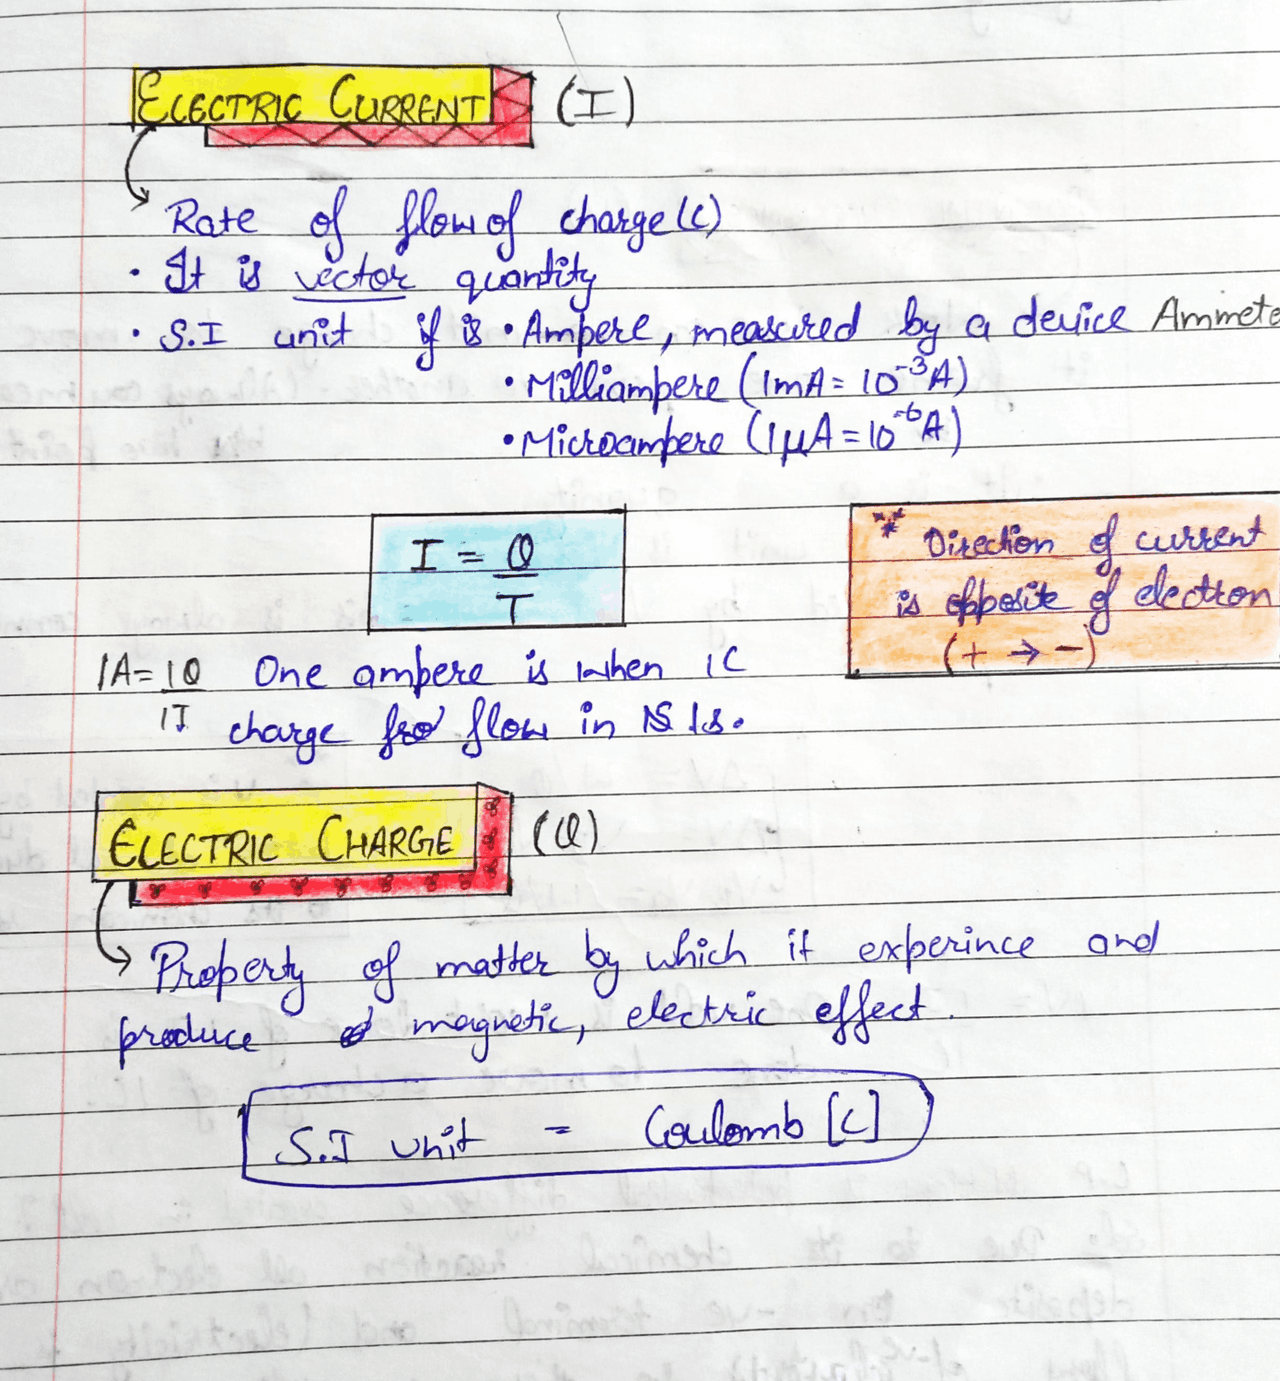 ELECTRIC CURRENT (I)
Rate of flow of charge (C)
• It is vector quantity
• S.I unit if is • Ampere, measured by a device Ammete
• Milliampere (1mA = 10⁻³A)
• Microampere (1μA = 10⁻⁶A)
I = Q
T
** Direction of current
is opposite of electron
(+ → -)
1A = 1Q One ampere is when 1C
1T charge flow in 1s.
ELECTRIC CHARGE (Q)
Property of matter by which it experince and
produce magnetic, electric effect.
S.I unit - Coulomb [C]